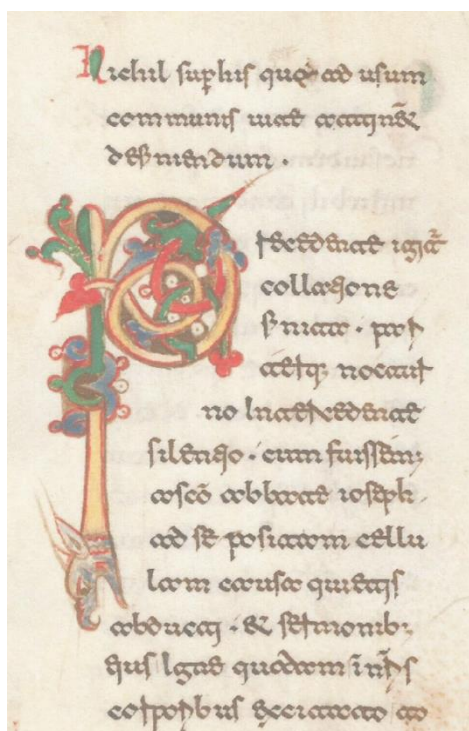 Nichil suplius quod ad usum
communis uitae attin&
definiendum .
Precedente igit̄
collatione
finita . post
atq; noctur
no intercedente
silentio . cum fuissem
a scō abbate ioseph
ad se positam cellu
lam causa quietis
abducti . & sermonib;
eius igne quodam in nr̄is
cordibus excitato